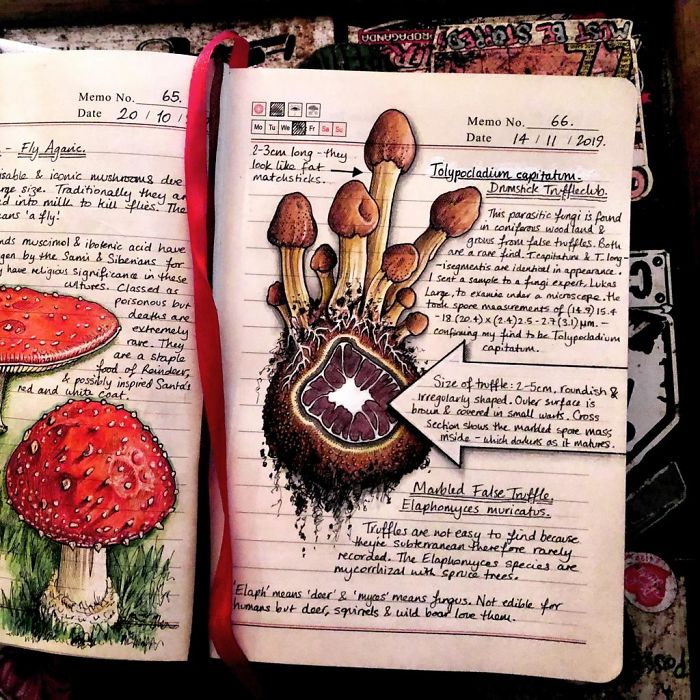 Memo No. 65.
Date 20/10/
- Fly Agaric.
isable & iconic mushrooms due
rge size. Traditionally they are
d into milk to kill flies. The
ans 'a fly!
nds muscimol & ibotenic acid have
gen by the Sami & Siberians for
y have religious significance in these
ultures. Classed as
poisonous but
deaths are
extremely
rare. They
are a staple
food of Reindeer,
& possibly inspired Santa's
red and white coat.
Mo Tu We Fr Sa Su
Memo No. 66.
Date 14/11/2019.
2-3cm long - they
look like fat
matchsticks.
Tolypocladium capitatum.
Drumstick Truffleclub.
This parasitic fungi is found
in coniferous woodland &
grows from false truffles. Both
are a rare find. T.capitatum & T.long-
-isegmentis are identical in appearance.
I sent a sample to a fungi expert, Lukas
Large, to examine under a microscope. He
took spore measurements of (14.9) 15.4
-18.(20.4) x (2.4) 2.5 - 2.7 (3.1) µm. -
confirming my find to be Tolypocladium
capitatum.
Size of truffle: 2-5cm, roundish &
irregularly shaped. Outer surface is
brown & covered in small warts. Cross
Section shows the marbled spore mass
inside - which darkens as it matures.
Marbled False Truffle.
Elaphomyces muricatus.
Truffles are not easy to find because
they're subterranean therefore rarely
recorded. The Elaphomyces species are
mycorrhizal with spruce trees.
'Elaph' means 'deer' & 'myces' means fungus. Not edible for
humans but deer, squirrels & wild boar love them.
MUST BE STOPPED
PROPAGANDA